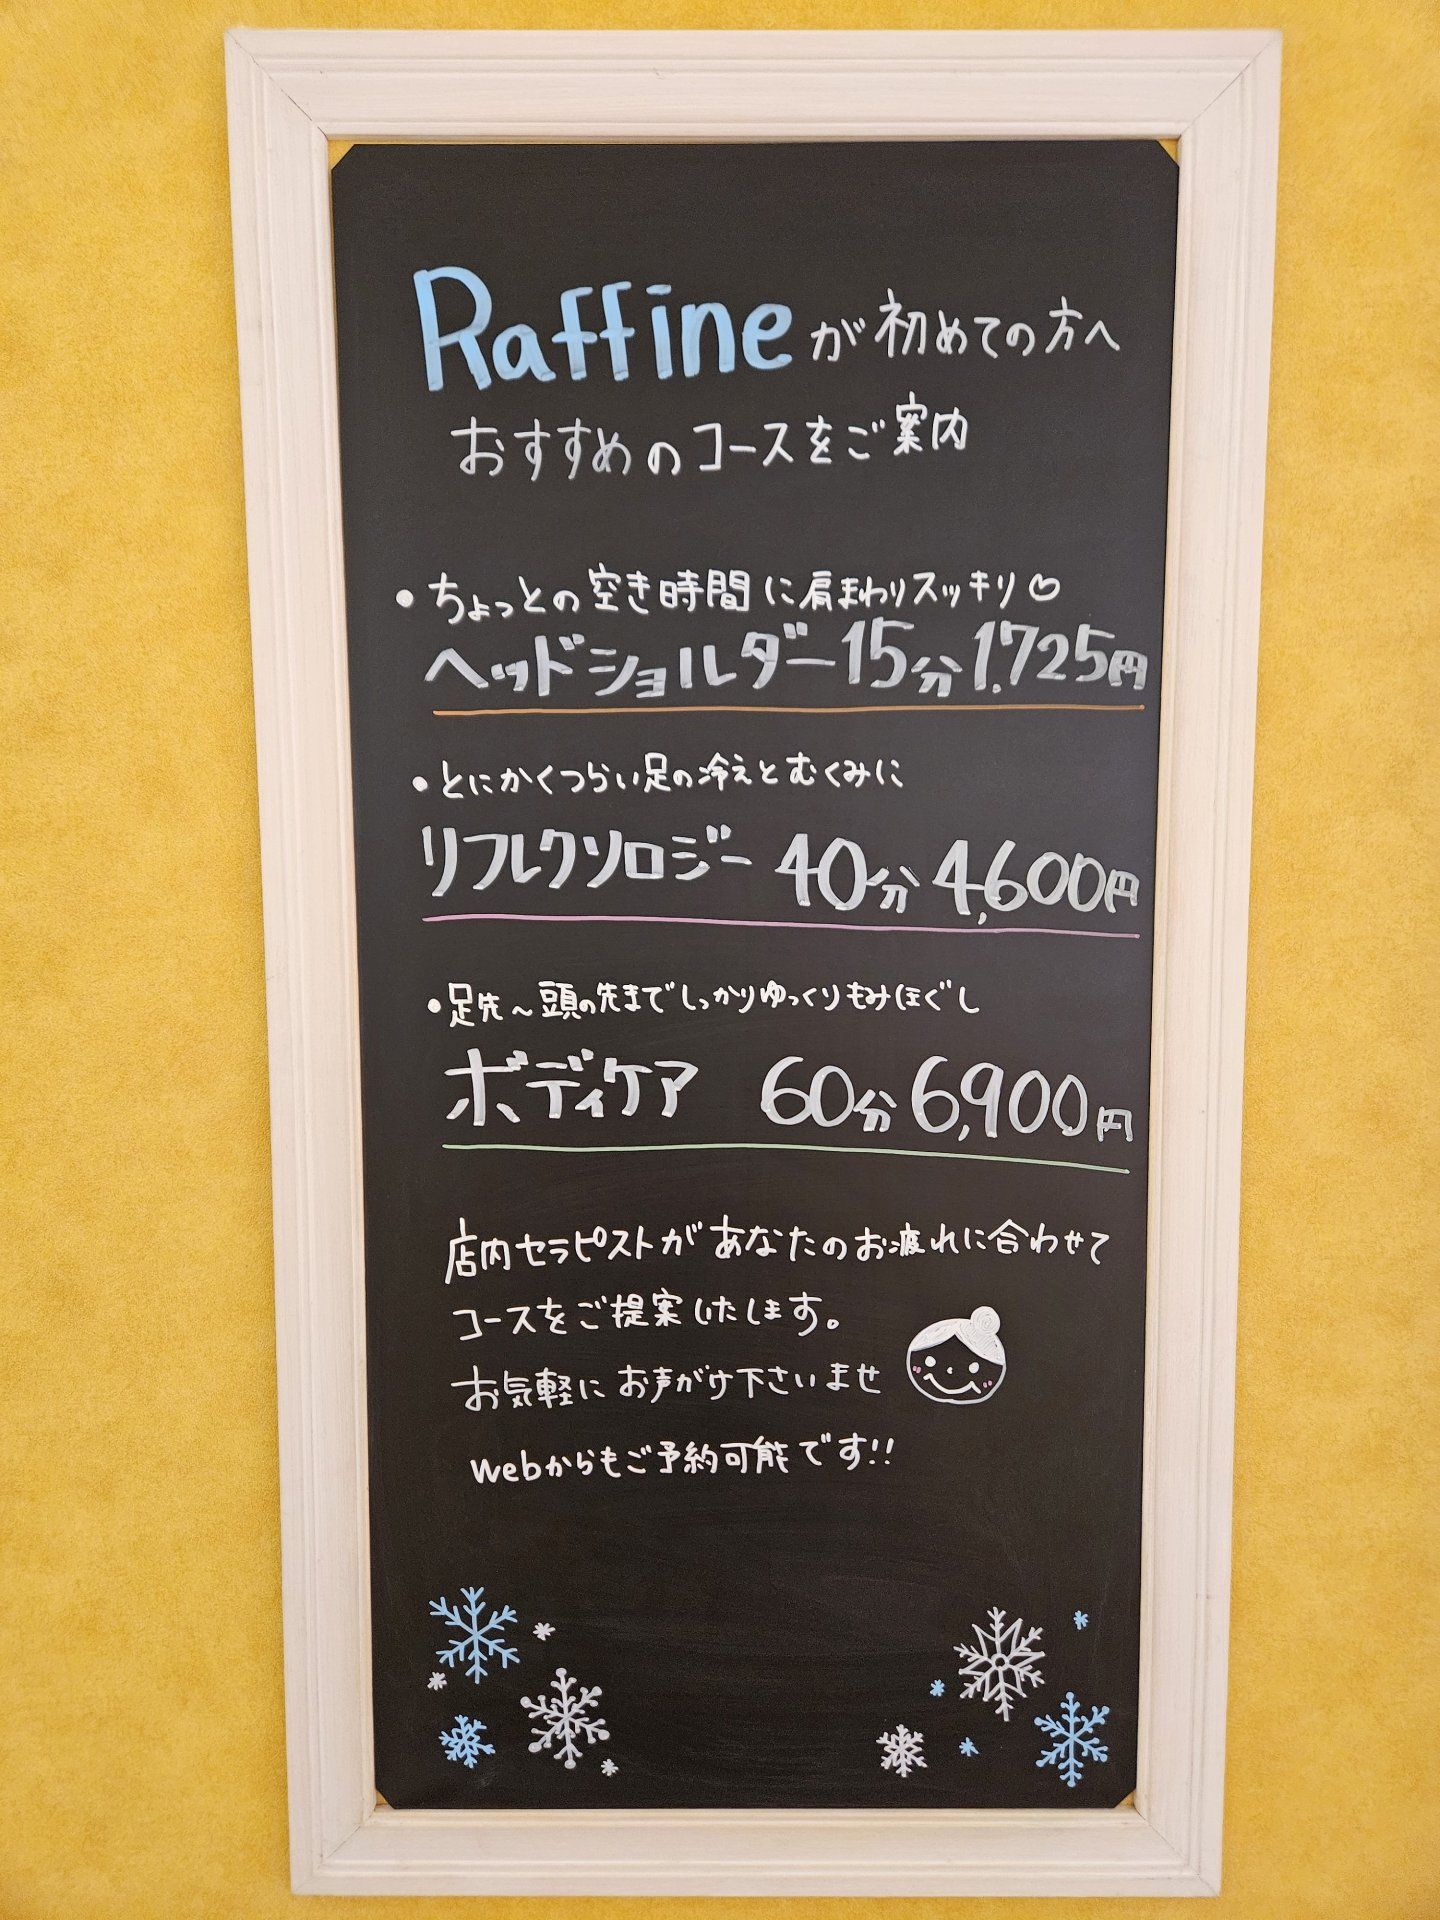 Raffineが初めての方へ
おすすめのコースをご案内
・ちょっとの空き時間に肩まわりスッキリ♡
ヘッドショルダー15分1.725円
・とにかくつらい足の冷えとむくみに
リフレクソロジー 40分 4,600円
・足先~頭の先までしっかりゆっくりもみほぐし
ボディケア 60分 6,900円
店内セラピストがあなたのお疲れに合わせて
コースをご提案いたします。
お気軽にお声がけ下さいませ
webからもご予約可能です!!